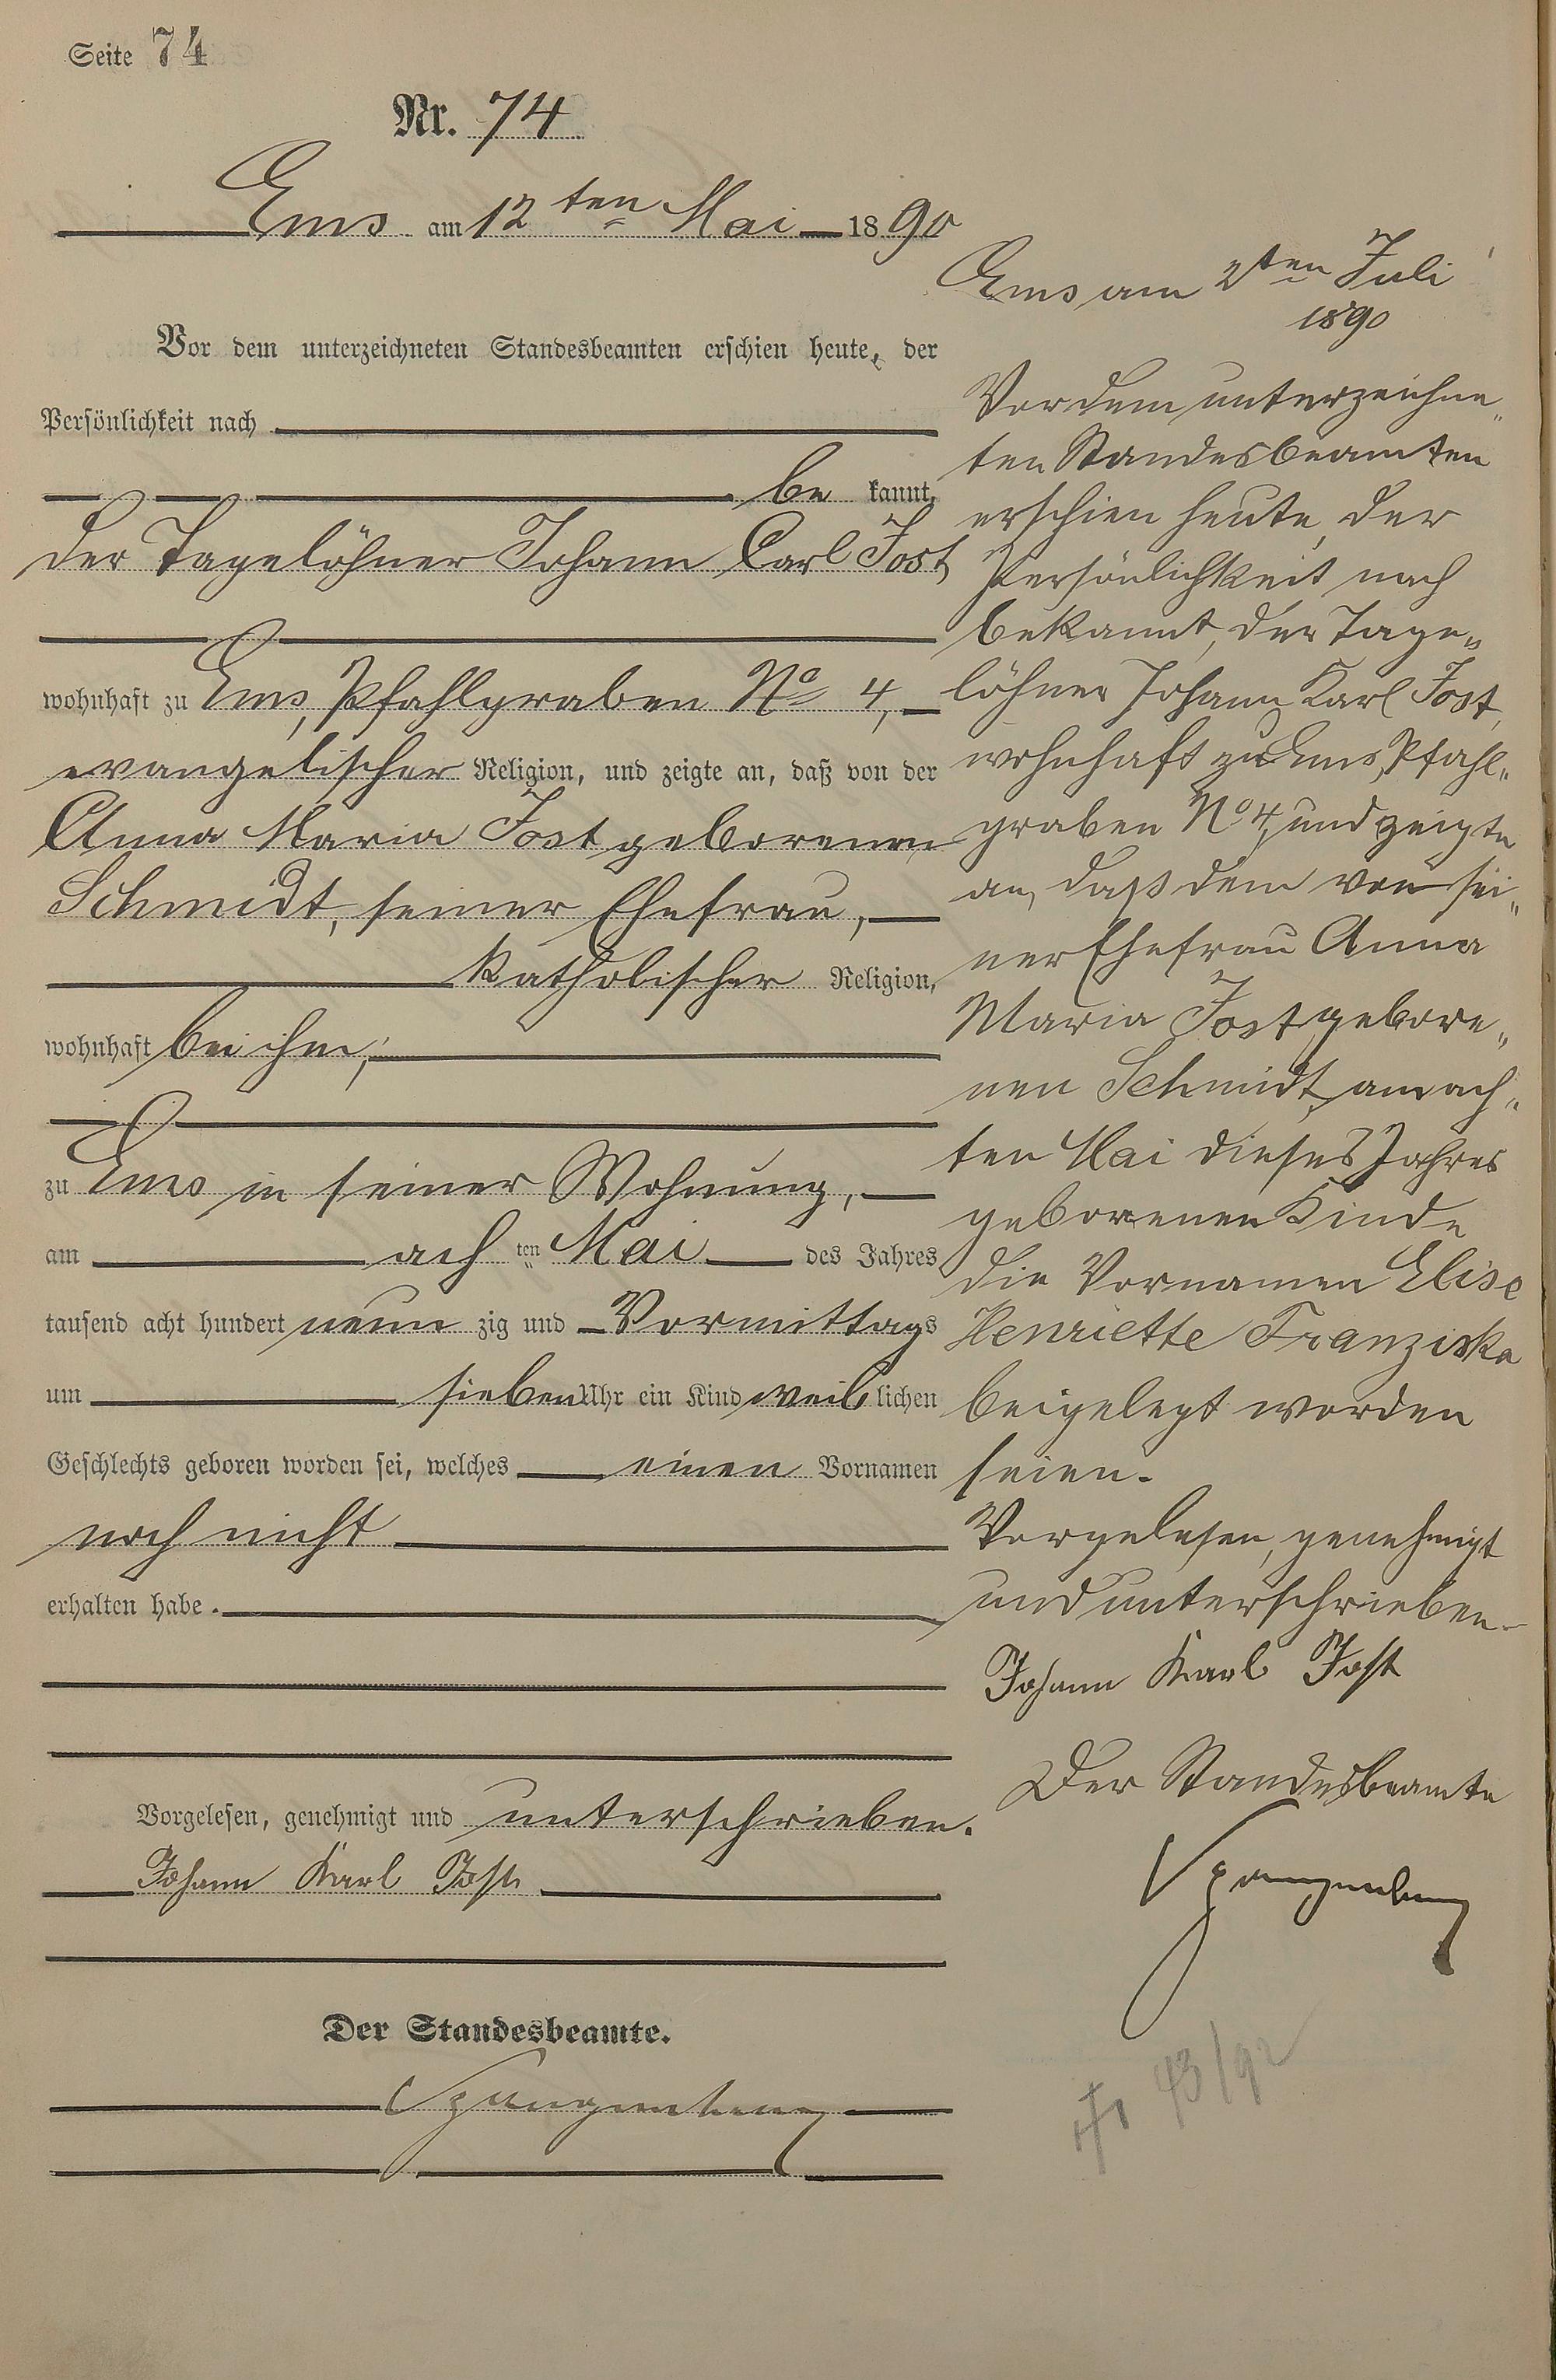 Seite 74
Nr. 74
Ems am 12ten Mai 1890
Vor dem unterzeichneten Standesbeamten erschien heute, der
Persönlichkeit nach
be kannt,
der Tagelöhner Johann Carl Jost,
wohnhaft zu Ems, Pfahlgraben No 4,
evangelischer Religion, und zeigte an, daß von der
Anna Maria Jost geborenen
Schmidt, seiner Ehefrau,
katholischer Religion,
wohnhaft bei ihm,
zu Ems in seiner Wohnung,
am ach ten Mai des Jahres
tausend acht hundert neun zig und Vormittags
um sieben Uhr ein Kind weib lichen
Geschlechts geboren worden sei, welches einen Vornamen
noch nicht
erhalten habe.
Vorgelesen, genehmigt und unterschrieben.
Johann Karl Jost
Der Standesbeamte.
Spangenberg
Ems am 2ten Juli
1890
Vor dem unterzeichne„
ten Standesbeamten
erschien heute, der
Persönlichkeit nach
bekannt, der Tage„
löhner Johann Karl Jost,
wohnhaft zu Ems, Pfahl„
graben No 4, und zeigte
an, daß dem von sei„
ner Ehefrau Anna
Maria Jost, gebore„
nen Schmidt, am ach„
ten Mai dieses Jahres
geborenen Kinde
die Vornamen Elise
Henriette Franziska
beigelegt worden
seien.
Vorgelesen, genehmigt
und unterschrieben.
Johann Karl Jost
Der Standesbeamte
Spangenberg
43/92